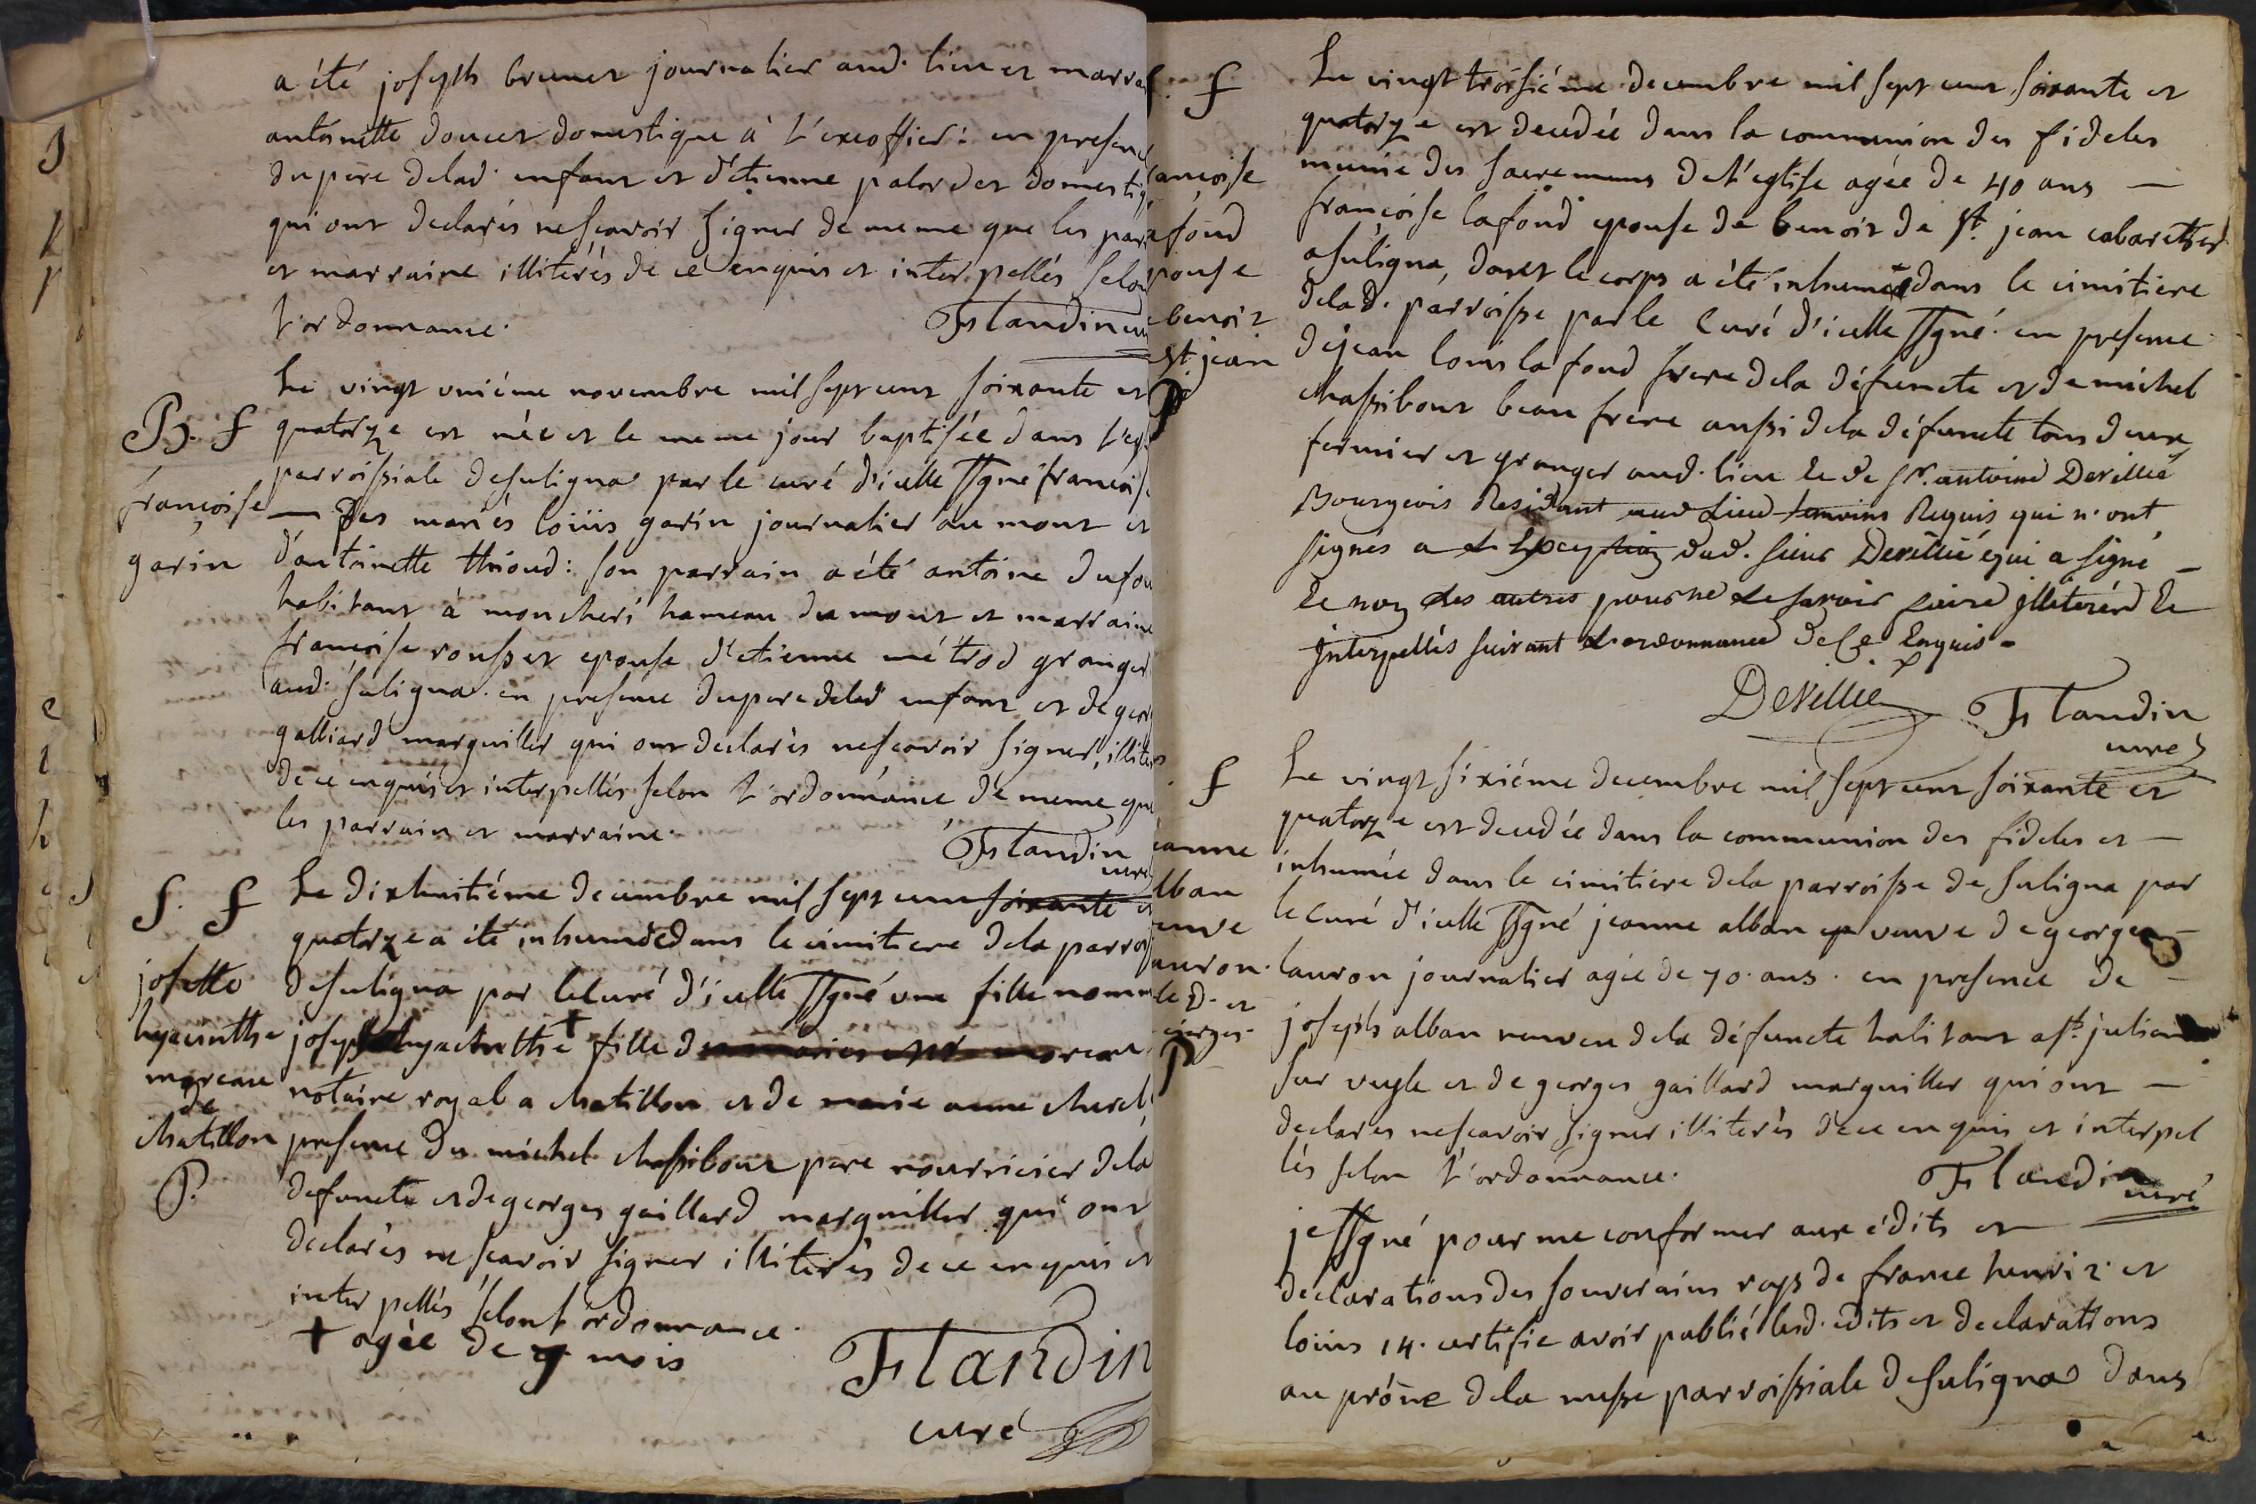 a été joseph brunet journalier aud. lieu et marra
antoinette doucet domestique à l'exeoffier: en presen
du père delad. enfant et d'étienne palordet domestiq
qui ont declarés nesçavoir signer de meme que les par
et marraine illiterés de ce enquis et interpellés selon
l'ordonnance. Flandin cu
B. f
françoise
garin
Le vingt uniéme novembre mil sept cent soixante et
quatorze est née et le meme jour baptisée dans l'eg
parroissiale desuligna par le curé d'icelle ssgné françoise
— des mariés loüis garin journalier au mont et
d'antoinette thioud: son parrain a été antoine dufou
habitant à moncheri hameau du mont et marraine
françoise rousset epouse d'etienne métrod granger
aud. suligna. en presence du pere delad enfant et de geor
galliard marguiller qui ont declarés nesçavoir signer, illite
de ce enquis et interpellés selon l'ordonnance de meme que
les parrain et marraine.
Flandin
curé
S. f
josette
hyacinthe
moreau
de
chatillon
P.
Le dixhuitiéme decembre mil sept cent soixante et
quatorze a été inhumée dans le cimitiere dela parroi
desuligna par lecuré d'icelle ssgné une fille nomm
joseph hyacinthe + fille des mariés moreau
notaire royal a chatillon et de marie anne churel
presence du michel chassibout pere nourricier dela
defuncte et de georges gaillard marguiller qui ont
declarés ne sçavoir signer illiterés de ce enquis et
interpellés selon l'ordonnance.
+ agée de 9 mois
Flandin
curé
S. f
ançoise
afond
pouse
benoit
St. jean
P
Le vingt troisiéme decembre mil sept cent soixante et
quatorze est decedée dans la communion des fideles
munie des sacremens de l'eglise agée de 40 ans —
françoise lafond epouse de benoit de St. jean cabaretier
asuligna, dont le corps a été inhumé dans le cimitiere
delad. parroisse par le Curé d'icelle ssgné. en presence
dejean louis lafond frere dela défuncte et de michel
chassibout beau frere aussi dela défuncte tous deux
fermier et granger aud. lieu Ee de Sr. antoine Devillié
Bourgeois Residant aud Lieu temoins Requis qui n'ont
signés a L'Exception dud. sieur Devillié qui a signé —
Ee non des autres pour ne Le savoir faire jlliterérd Ee
jnterpellés suivant L'ordonnance de Ce Enquis -
Devillié Flandin
curé
f
anne
lban
euve
auron.
le d. et
georges.
P
Le vingt sixiéme decembre mil sept cent soixante et
quatorze est decedée dans la communion des fideles et —
inhumée dans le cimitiere dela parroisse de suligna par
lecuré d'icelle ssgné jeanne alban ep veuve de georges —
lauron journalier agée de 70. ans. en presence de —
joseph alban neuveu dela défuncte habitant a St. julien
sur veyle et de georges gaillard marguiller qui ont —
declarés nesçavoir signer illiterés de ce enquis et interpel
lés selon l'ordonnance.
Flandin
curé
je ssgné pour me conformer aux édits et
declarations des souverains roys de france henri 2. et
loüis 14. certifie avoir publié lesd. edits et declarations
au prône dela messe parroissiale desuligna dans